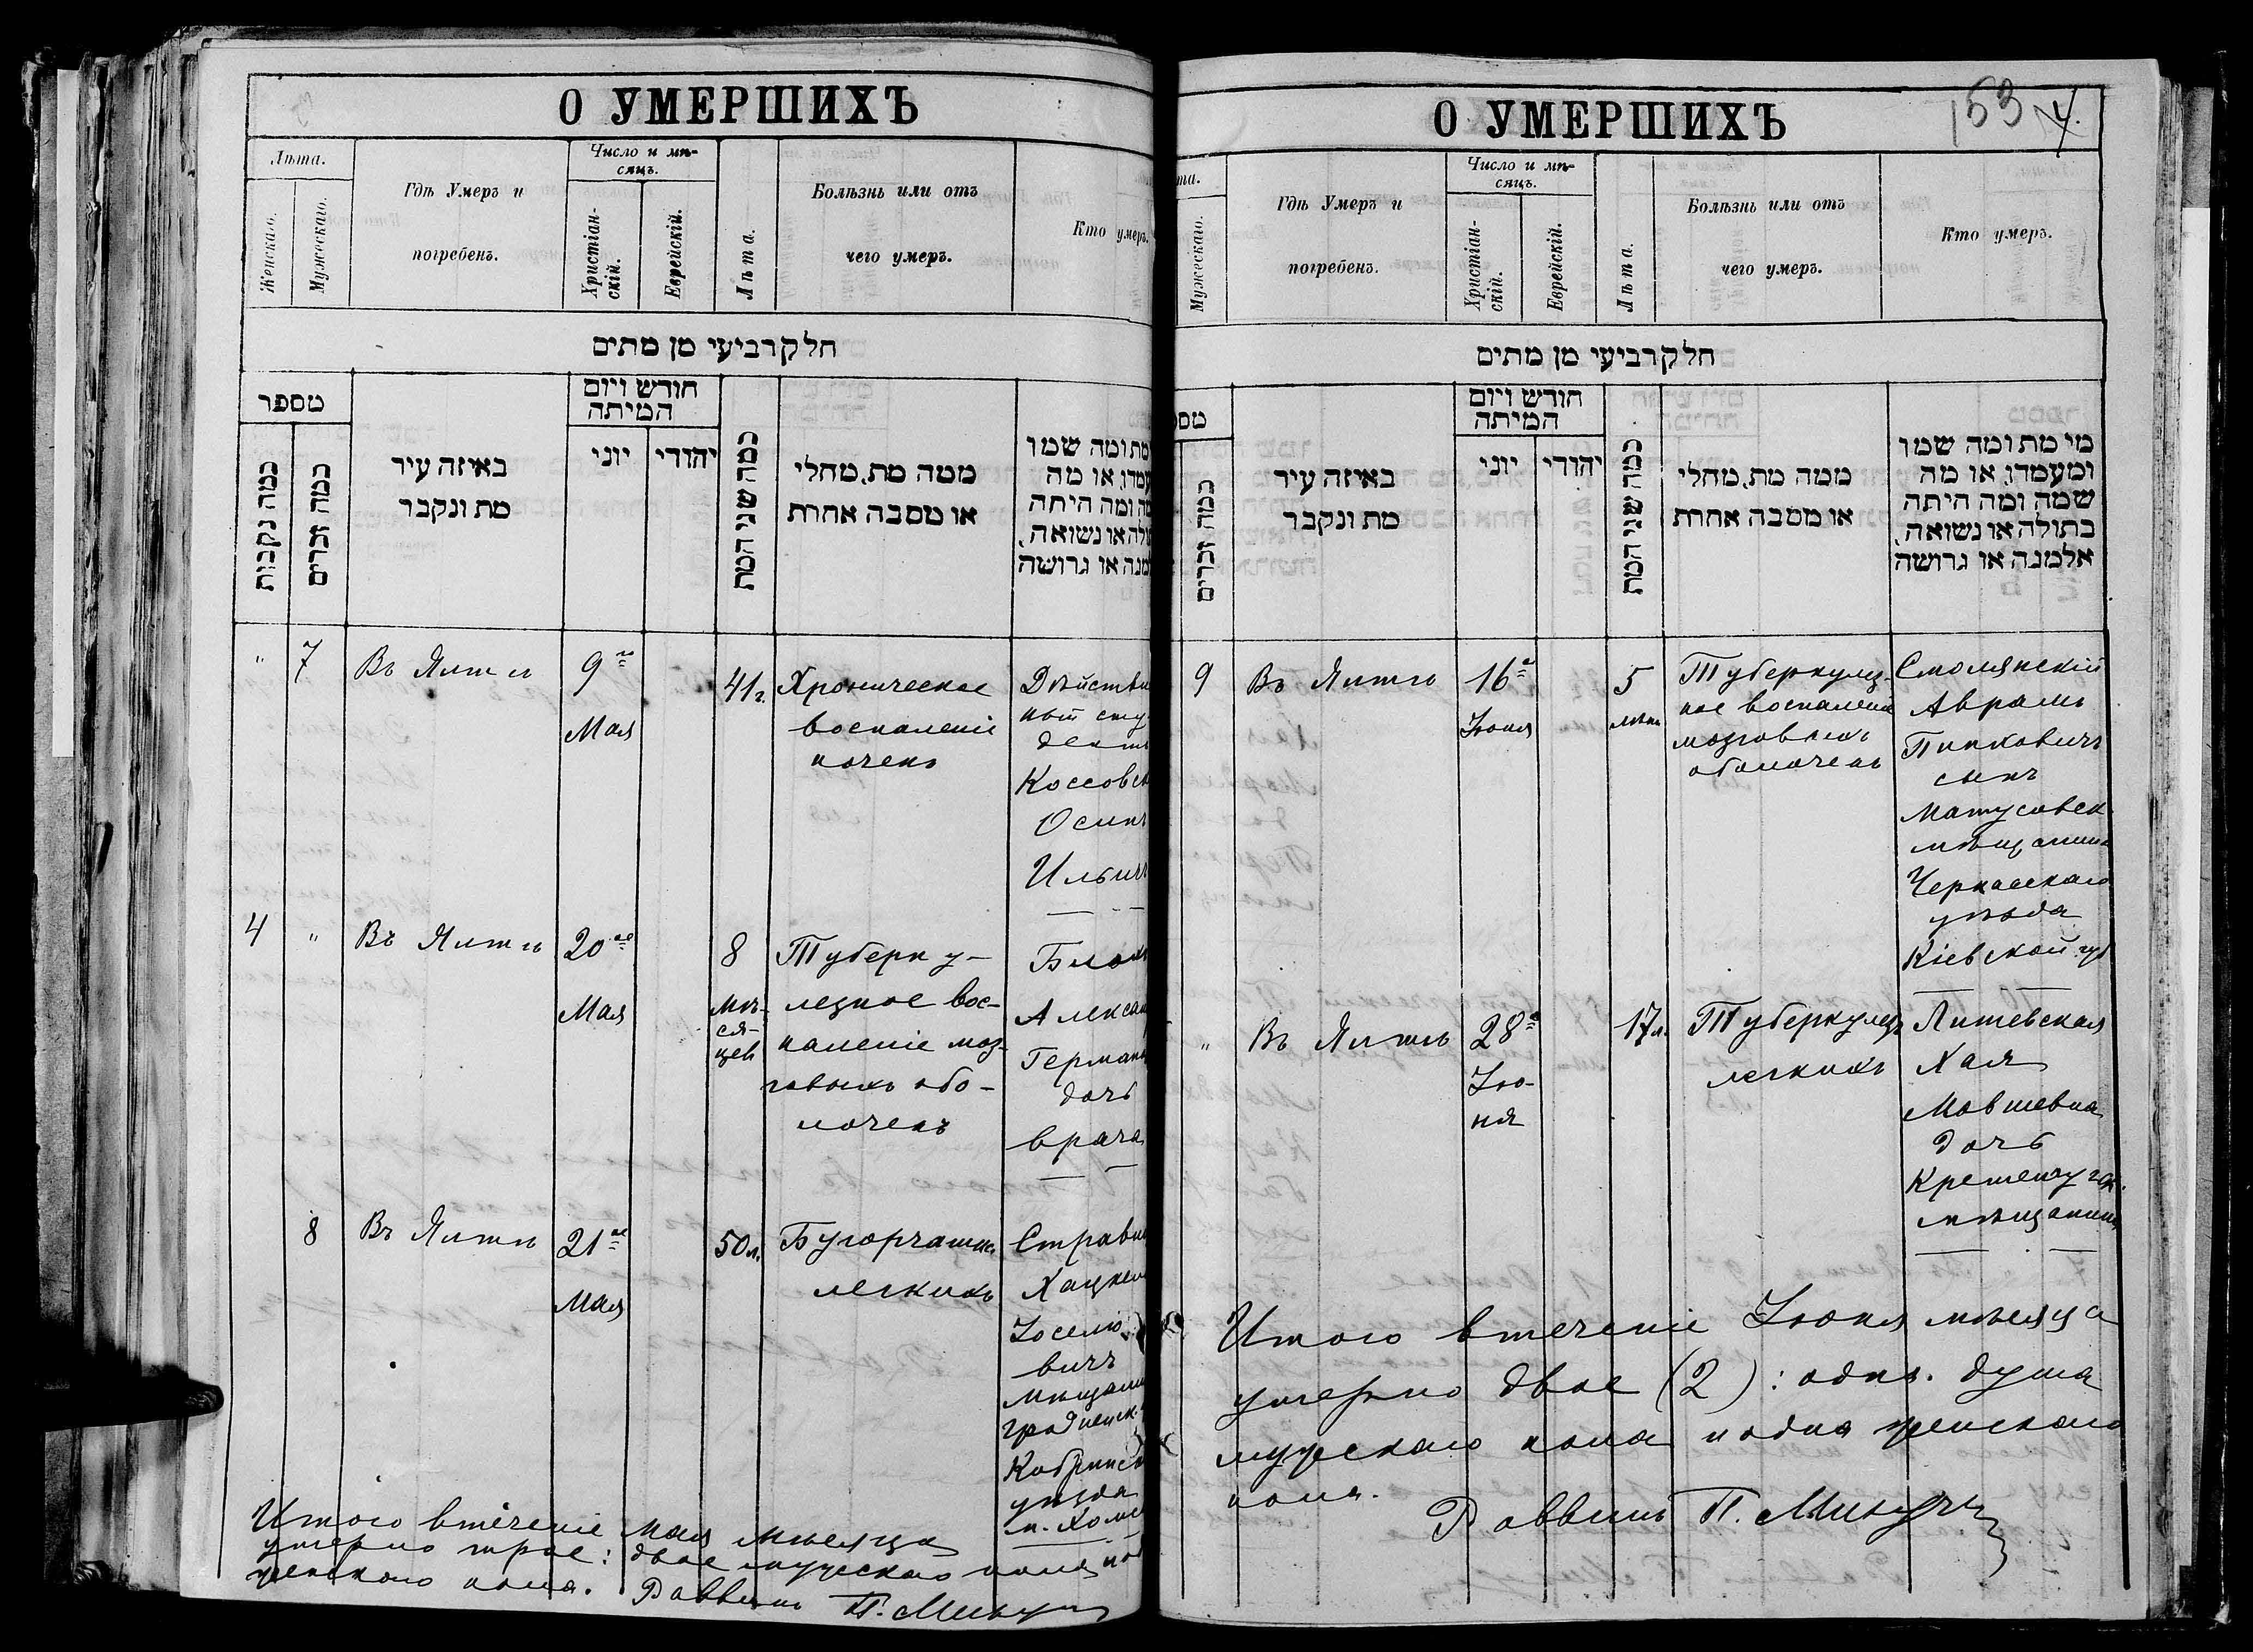 О УМЕРШИХЪ
Лѣта.
Женскаго.
Мужескаго.
Гдѣ Умеръ и
погребенъ.
Число и мѣ-
сяцъ.
Христіан-
скій.
Еврейскій.
Лѣта.
Болѣзнь или отъ
чего умеръ.
Кто умеръ.
חלק רביעי מן מתים
מספר
כמה נקבות
כמה זכרים
באיזה עיר
מת ונקבר
חודש ויום
המיתה
יוני
יהודי
כמה שני המת
ממה מת, מחלי
או מסבה אחרת
מת ומה שמו
עמדו, או מה
מה ומה היתה
ולה או נשואה,
מנה או גרושה
"
7
Въ Ялтѣ
9го
Мая
41 г.
Хроническое
воспаленіе
почекъ
Дѣйстви
ный сту
дентъ
Коссовск
Осипъ
Ильичъ
4
"
Въ Ялтѣ
20го
Мая
8
мѣ-
ся-
цев
Туберку-
лезное вос-
паленіе моз-
говыхъ обо-
лочекъ
Блохъ
Алексан
Герман
дочь
врача
8
Въ Ялтѣ
21го
Мая
50 л.
Бугорчатка
легкихъ
Хацкел
Іоселіо
вичъ
мѣщани
гродненск.
Кобринск
уѣзда
Итого втеченіе мая мѣсяца
умерло трое: двое мужскаго пола и од
женскаго пола. Раввинъ П.
О УМЕРШИХЪ
153
та.
Мужескаго.
Гдѣ Умеръ и
погребенъ.
Число и мѣ-
сяцъ.
Христіан-
скій.
Еврейскій.
Лѣта.
Болѣзнь или отъ
чего умеръ.
Кто умеръ.
חלק רביעי מן מתים
מספ
כמה זכרים
באיזה עיר
מת ונקבר
חודש ויום
המיתה
יוני
יהודי
כמה שני המת
ממה מת, מחלי
או מסבה אחרת
מי מת ומה שמו
ומעמדו, או מה
שמה ומה היתה
בתולה או נשואה,
אלמנה או גרושה
9
Въ Ялтѣ
16го
Іюня
5
лѣтъ
Туберкулез-
ное воспаленіе
мозговыхъ
оболочекъ
Смолянскій
Аврамъ
Пинковичъ
сынъ
Матусовск
мѣщанина
Черкасскаго
уѣзда
Кіевской губ
"
Въ Ялтѣ
28го
Ію-
ня
17 л.
Туберкулезъ
легкихъ
Литевская
Хая
Мовшевна
дочь
Кременчугск.
мѣщанина
Итого втеченіе Іюня мѣсяца
умерло двое (2): одна душа
мужскаго пола и одна женскаго
пола.
Раввинъ П.